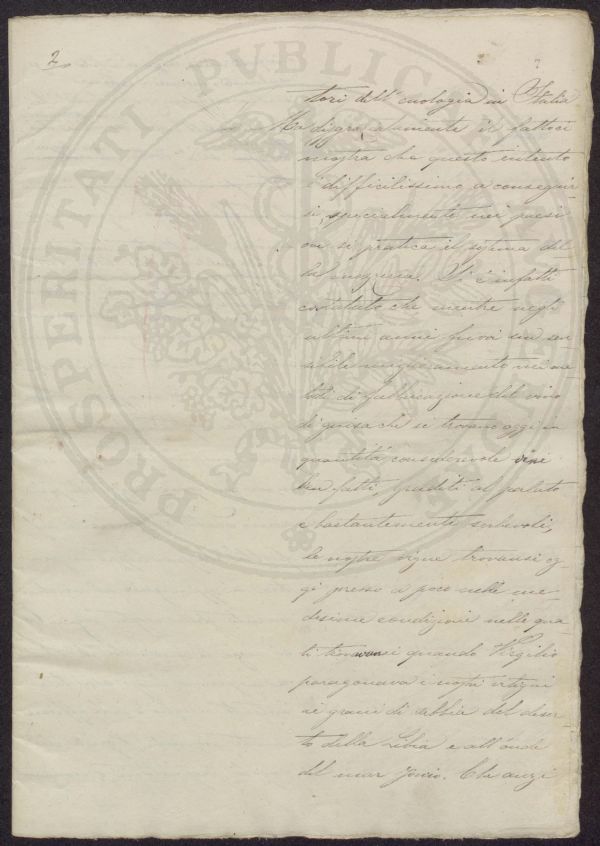 2
tori dell'enologia in Italia
Ma disgraziatamente il fatto ci
mostra che questo intento
è difficilissimo a conseguir
si, specialmente nei paesi
ove si pratica il sistema del
la mezzeria. Si è infatti
constatato che mentre negli
ultimi anni fuvvi un sen
sibile miglioramento nei me
todi di fabbricazione del vino
di guisa che si trovano oggi in
quantità considerevole vini
ben fatti, graditi al palato
e bastantemente serbevoli,
le nostre vigne trovansi og
gi presso a poco nelle me
desime condizioni nelle qua
li trovavansi quando Virgilio
paragonava i nostri vitigni
ai grani di sabbia del deser
to della Libia e all'onde
del mar Jonio. Che anzi
PROSPERITATI PVBLICAE